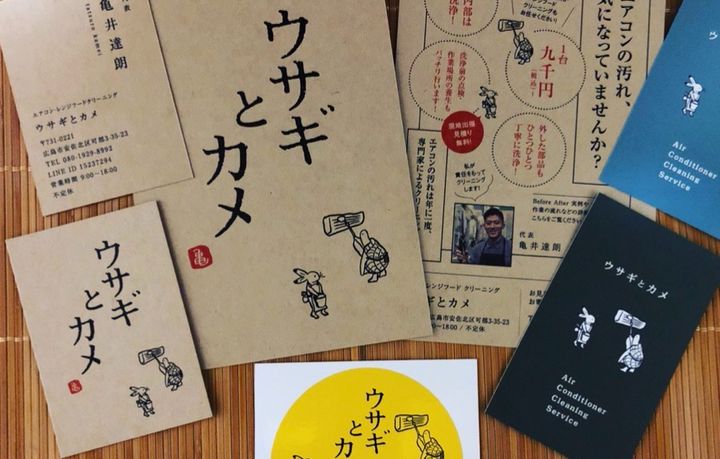 代表
亀井達朗
エアコン・レンジフードクリーニング
ウサギとカメ
〒731-0221
広島市安佐北区可部3-35-23
TEL 080-1929-8992
LINE ID 15237294
営業時間 9:00〜18:00
不定休
ウサギ
と
カメ
亀
ウサギ
と
カメ
亀
エアコンの汚れ、
気になっていませんか?
1台
九千円
(税込)
内部は
洗浄!
クリーニングも
お任せください!
洗浄前の点検・
作業場所の養生も
バッチリ行います!
外した部品も
ひとつひとつ
丁寧に洗浄!
現地出張
見積り
無料!
エアコンの汚れは年に一度、
専門家によるクリ
私が
責任をもって
クリーニング
します!
Before After 実例や
作業の流れなどの詳
こちらをご覧ください
代表
亀井達朗
レンジフード クリーニング
ギとカメ
広島市安佐北区可部3-35-23
〜18:00 / 不定休
Air
Conditioner
Cleaning
Service
ウサギとカメ
Air
Conditioner
Cleaning
Service
ウサギ
と
カ